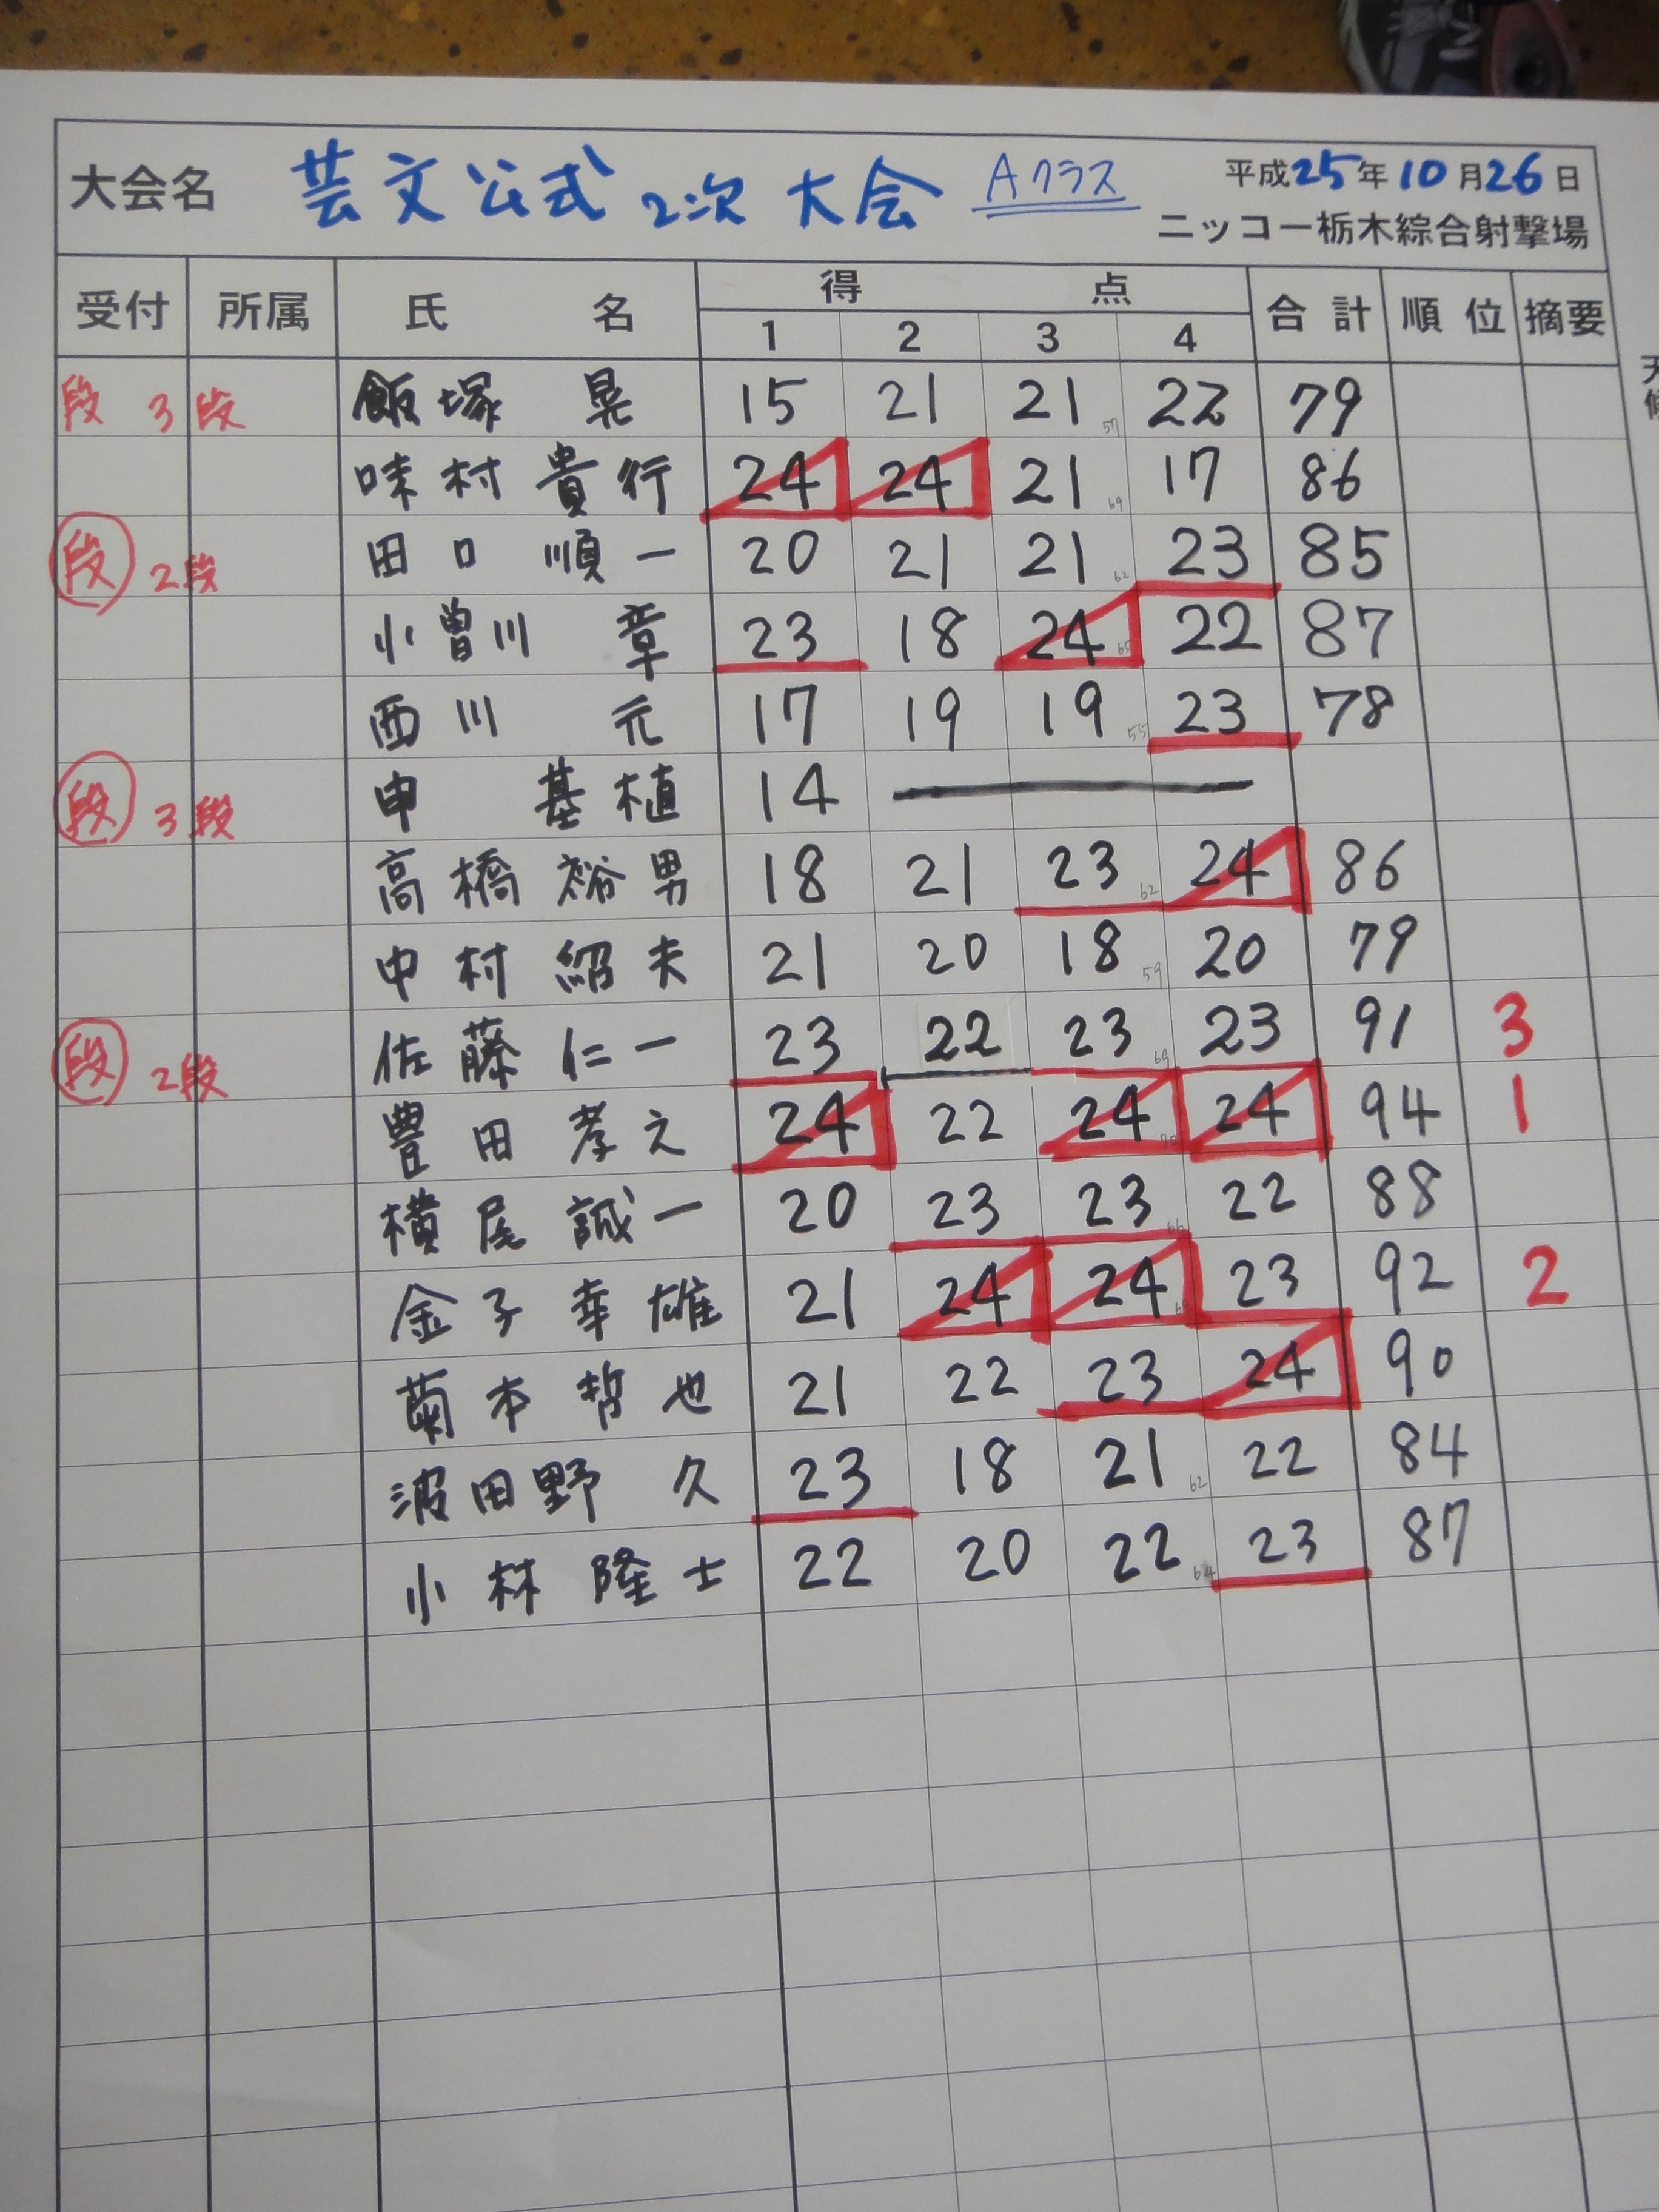 大会名 芸文公式2次大会 Aクラス 平成25年10月26日
ニッコー栃木綜合射撃場
受付 所属 氏名 得点 合計 順位 摘要
1 2 3 4
段 3段 飯塚 晃 15 21 21 57 22 79
味村貴行 24 24 21 69 17 86
段 2段 田口順一 20 21 21 62 23 85
小曽川 章 23 18 24 65 22 87
西川 元 17 19 19 55 23 78
段 3段 申 基植 14
高橋裕男 18 21 23 62 24 86
中村紹夫 21 20 18 59 20 79
段 2段 佐藤仁一 23 22 23 23 91 3
豊田孝之 24 22 24 70 24 94 1
横尾誠一 20 23 23 66 22 88
金子幸雄 21 24 24 23 92 2
菊本哲也 21 22 23 24 90
波田野 久 23 18 21 62 22 84
小林隆士 22 20 22 64 23 87